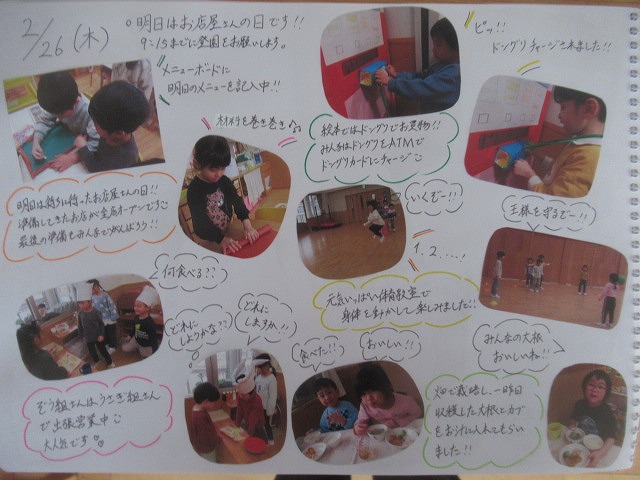 2/26 (木)
○明日はお店屋さんの日です!!
9:15までに登園をお願いします。
メニューボードに
明日のメニューを記入中!!
ピッ!!
ドングリチャージされました!!
材料を巻き巻き♪
絵本ではドングリでお買物!!
みんなはドングリをATMで
ドングリカードにチャージ
明日は待ちに待ったお店屋さんの日!!
準備してきたお店が全店オープンです
最後の準備もみんなでがんばろう!!
いくぞー!!
1.2.…!
王様を守るぞー!!
元気いっぱい体育教室で
身体を動かして楽しみました!!
何食べる??
どれに
しようかな??
どれに
しますか!!
食べた!!
おいしい!!
みんなの大根
おいしいね!!
ぞう組さんはうさぎ組さん
で出張営業中
大人気です
畑で栽培し、一昨日
収穫した大根とカブ
をお汁に入れてもらい
ました!!